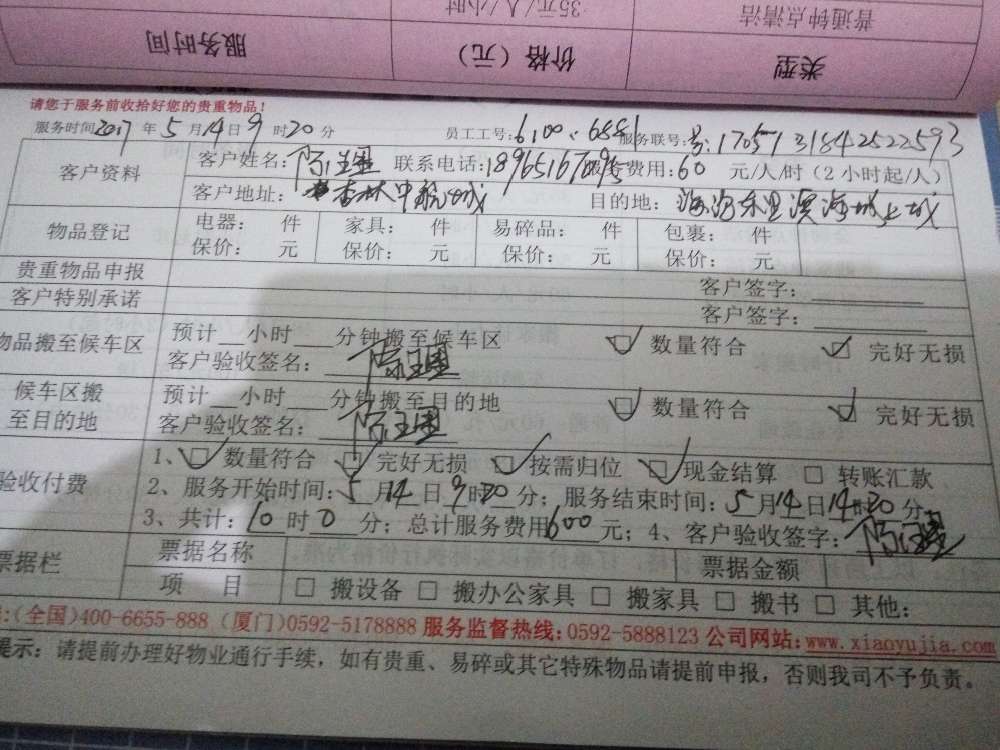 普通钟点清洁 35元/人/小时
类型 价格(元) 服务时间
请您于服务前收拾好您的贵重物品!
服务时间2017年5月14日9时20分 员工工号:6100、6881 服务联号: 17057131842522593
客户资料 客户姓名: 联系电话: 服务费用:60元/人/时(2小时起/人)
客户地址:杏林中航城 目的地:海沧禾里滨海城上城
物品登记 电器: 件 家具: 件 易碎品: 件 包裹: 件
保价: 元 保价: 元 保价: 元 保价: 元
贵重物品申报 客户签字:
客户特别承诺 客户签字:
物品搬至候车区 预计__小时___分钟搬至候车区 ☑数量符合 ☑完好无损
客户验收签名:
候车区搬至目的地 预计__小时___分钟搬至目的地 ☑数量符合 ☑完好无损
客户验收签名:
验收付费 1、☑数量符合 ☑完好无损 ☑按需归位 ☑现金结算 □转账汇款
2、服务开始时间:5月14日9时20分;服务结束时间:5月14日14时20分
3、共计:10时0分;总计服务费用600元;4、客户验收签字:
票据栏 票据名称 票据金额
项 目 □搬设备 □搬办公家具 □搬家具 □搬书 □其他:
:(全国)400-6655-888 (厦门)0592-5178888 服务监督热线:0592-5888123 公司网站:www.xiaoyujia.com
提示:请提前办理好物业通行手续,如有贵重、易碎或其它特殊物品请提前申报,否则我司不予负责。